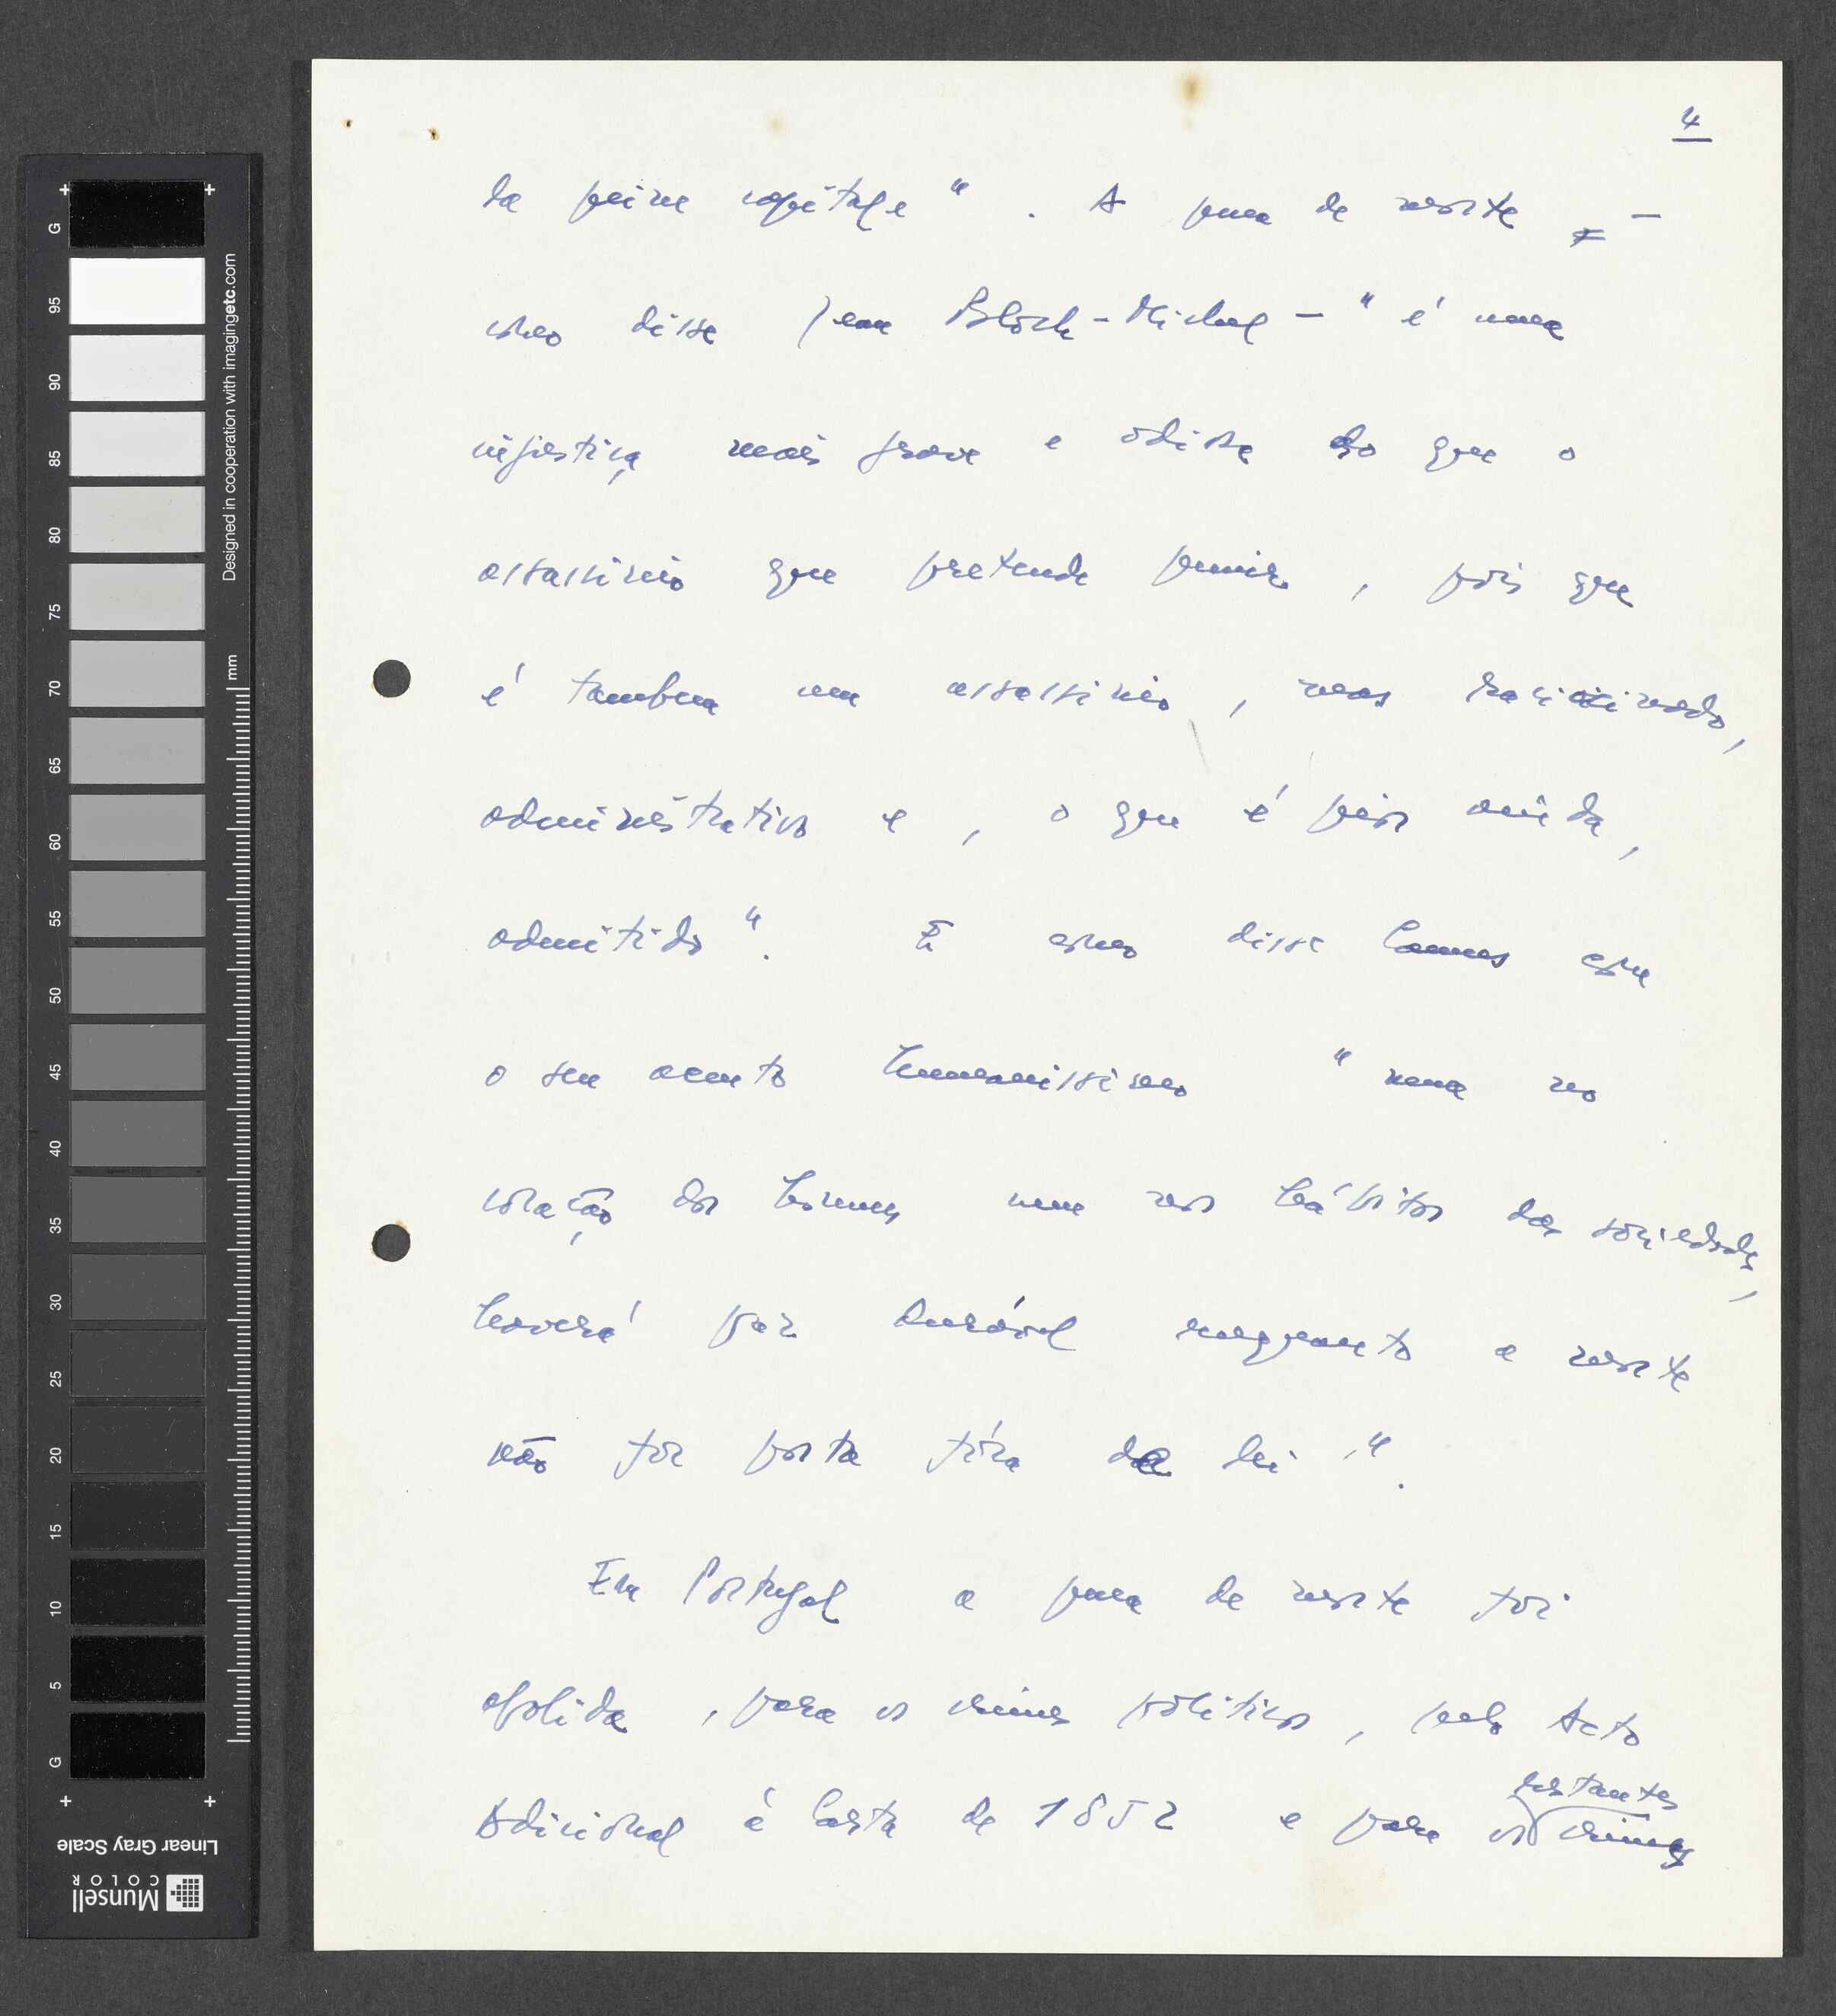 4
la peine capitale". A pena de morte, -
como disse Jean Bloch-Michel - "é uma
injustiça mais grave e odiosa do que o
assassínio que pretende punir, pois que
é tambem um assassínio, mas raciocinado,
administrativo e, o que é pior ainda,
admitido". E como disse Camus com
o seu acento humanissimo "nem no
coração dos homens nem nos hábitos das sociedades,
haverá paz durável enquanto a morte
não for posta fóra da lei".
Em Portugal a pena de morte foi
abolida, para os crimes politicos, pelo Acto
restantes
Adicional à Carta de 1852 e para os crimes
G 95 90 85 80 75 70 65 60 55 50 45 40 35 30 25 20 15 10 5 G
Designed in cooperation with imagingetc.com
mm
Linear Gray Scale
Munsell
COLOR